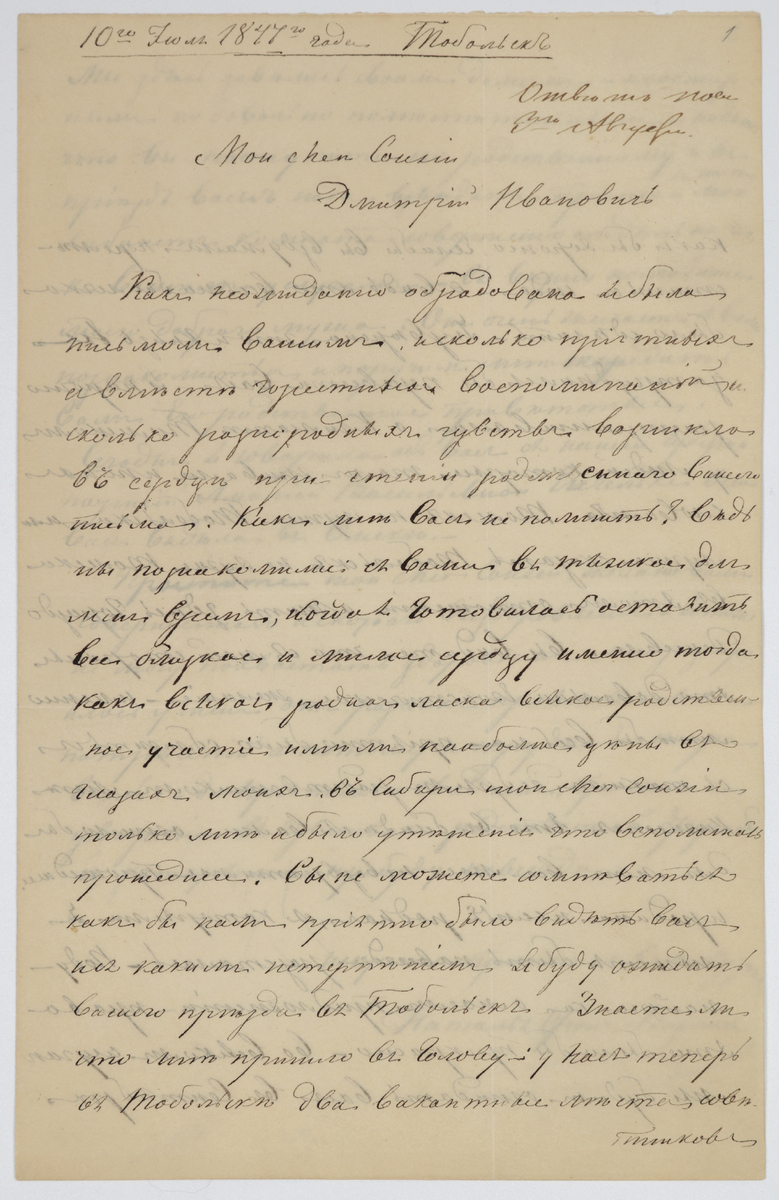 10го Іюля 1847го года Тобольскъ
1
Ответъ посл
3го Августа.
Mon cher Cousin
Дмитрій Ивановичъ
Какъ неожиданно обрадована я была
письмомъ Вашимъ, и сколько пріятныхъ
а вместе горестныхъ воспоминаній и
сколько разнородныхъ чувствъ возникло
въ сердце при чтеніи родственнаго Вашего
письма. Какъ мне Васъ не помнить? Ведь
мы познакомились съ Вами въ тяжкое для
меня время, когда я готовилась оставить
все близкое и милое сердцу именно тогда
какъ всякая родная ласка всякое родствен-
ное участіе имели наиболее цены въ
глазахъ моихъ. Въ Сибири mon cher Cousin
только мне и было утешенія что вспоминать
прошедшее. Вы не можете сомневаться
какъ бы намъ пріятно было видеть Васъ
и съ какимъ нетерпеніемъ я буду ожидать
Вашего приезда въ Тобольскъ Знаете ли
что мне пришло въ голову: у насъ теперь
въ Тобольске два вакантные места совет-
никовъ